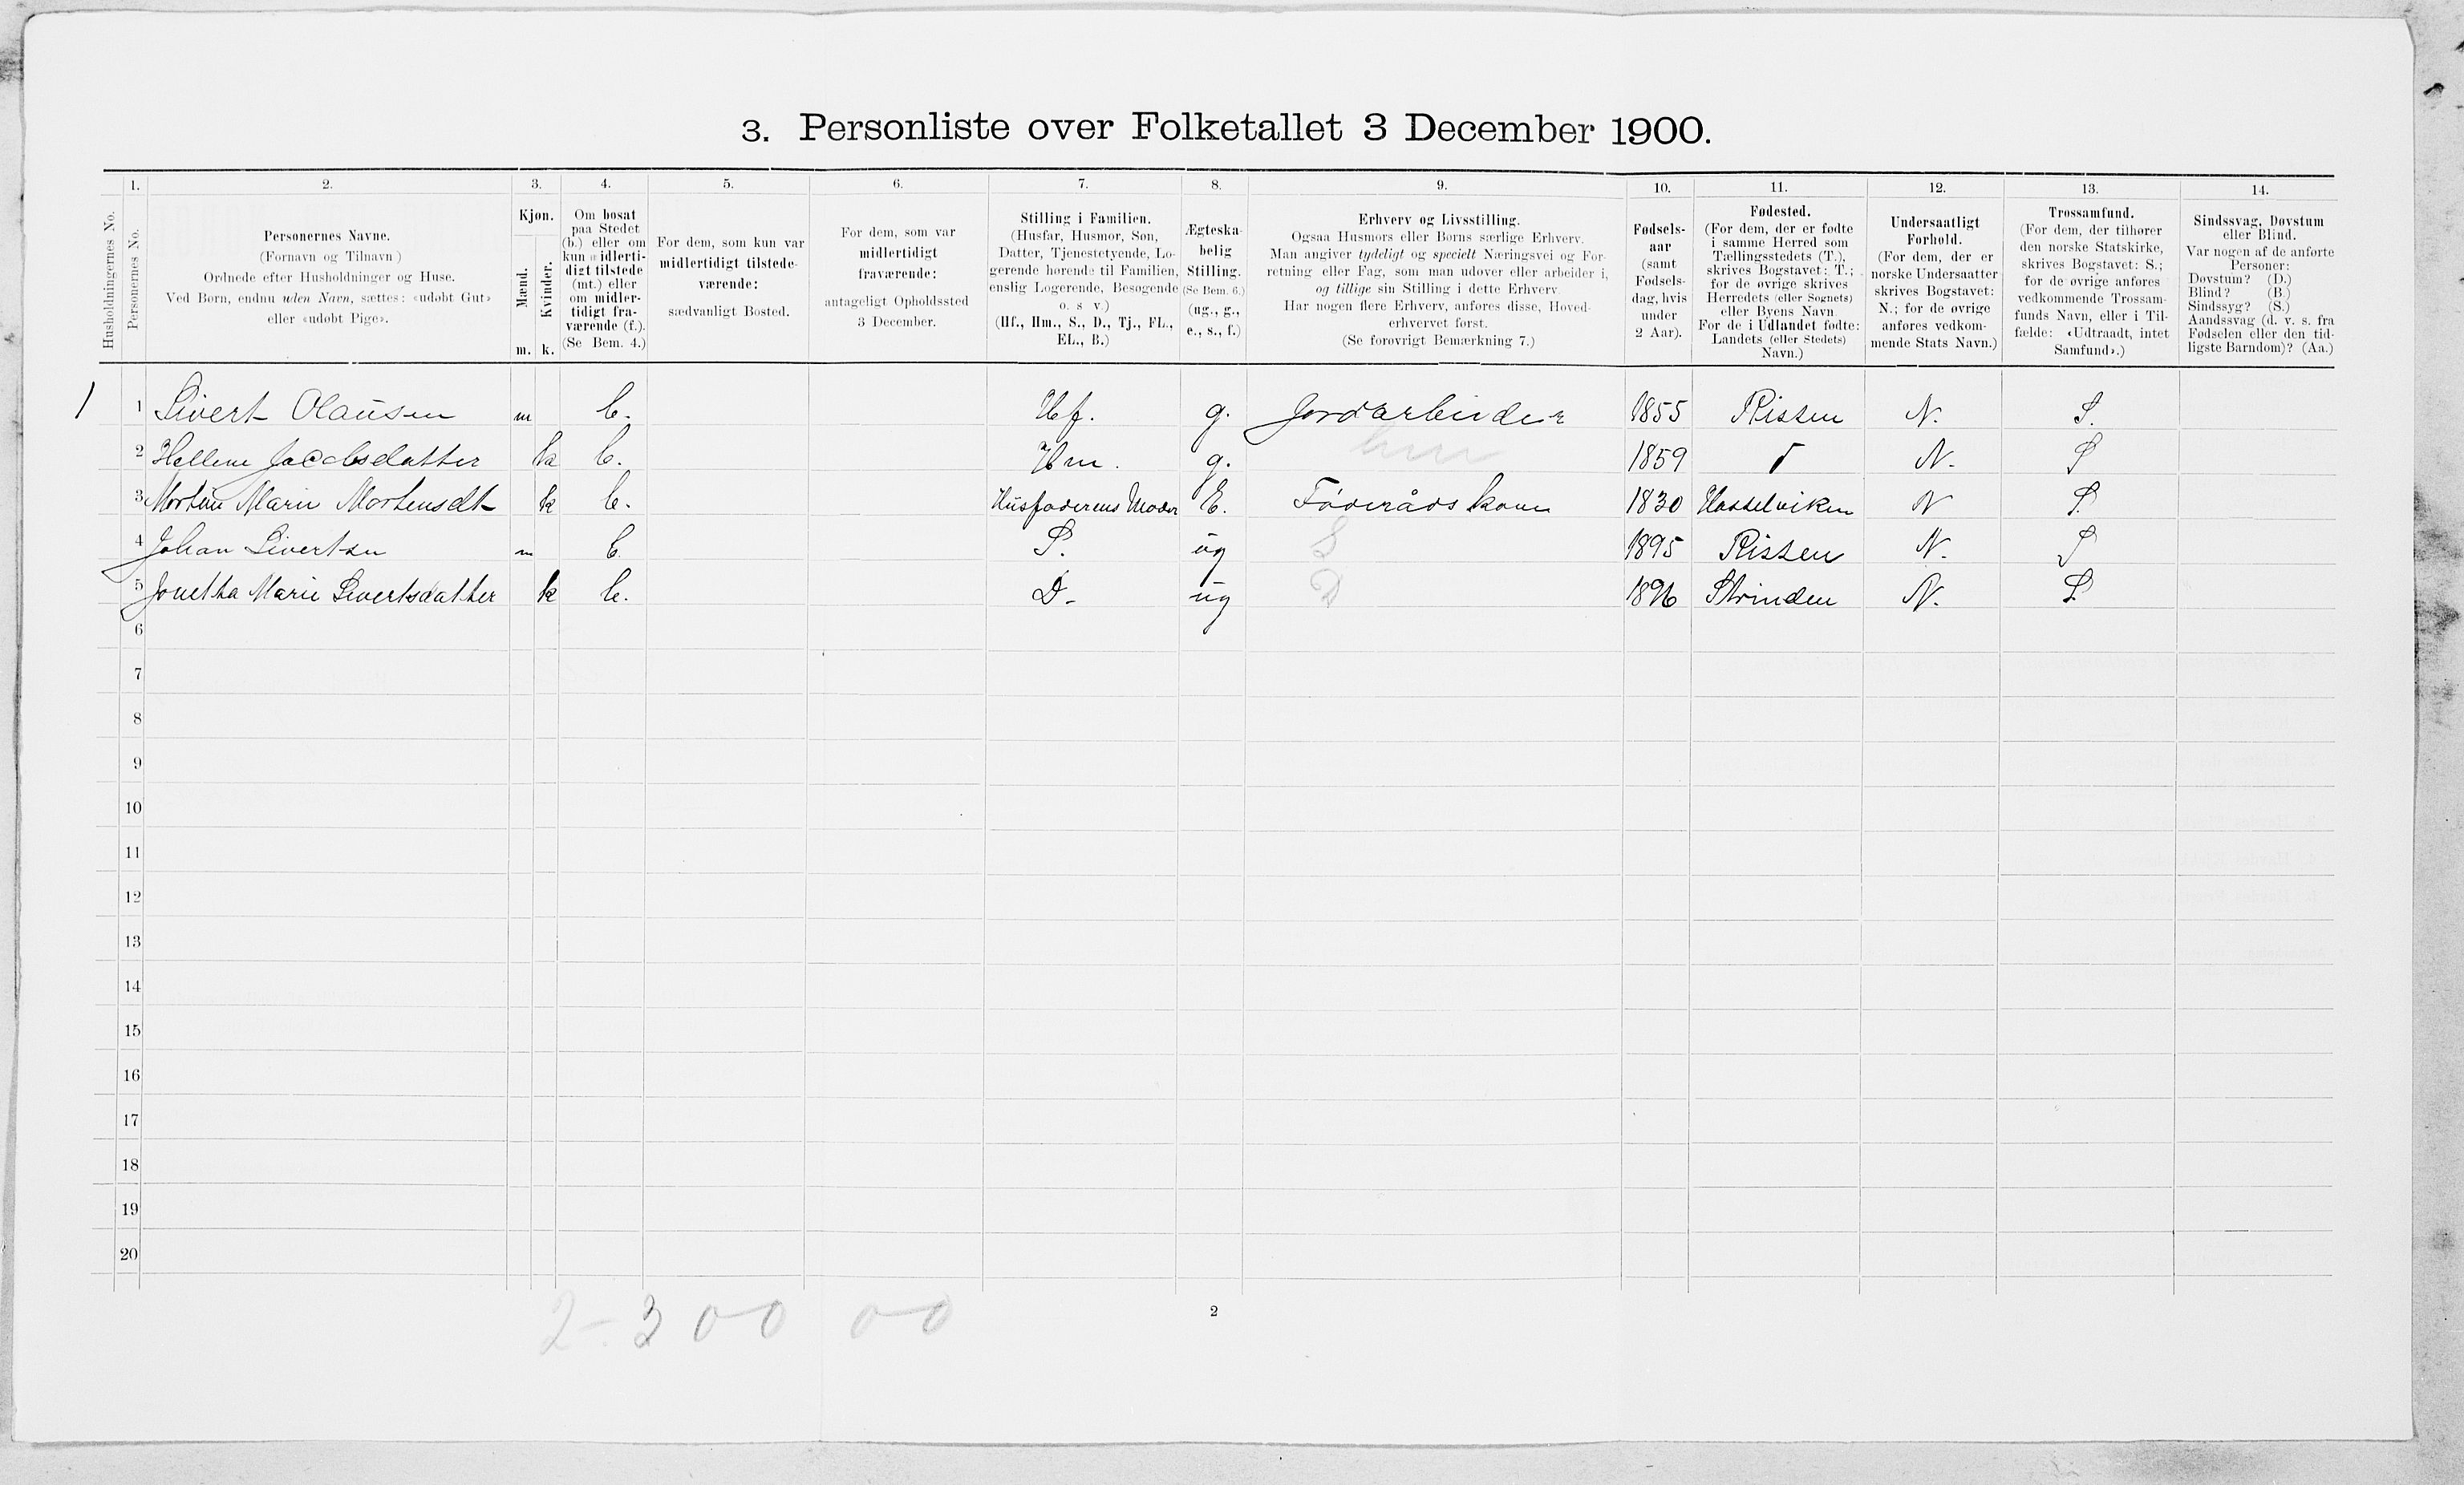 3. Personliste over Folketallet 3 December 1900.
1. 2. 3. 4. 5. 6. 7. 8. 9. 10. 11. 12. 13. 14.
Husholdningernes No.
Personernes No.
Personernes Navne.
(Fornavn og Tilnavn)
Ordnede efter Husholdninger og Huse.
Ved Børn, endnu uden Navn, sættes: «udøbt Gut»
eller «udøbt Pige».
Kjøn.
Mænd.
Kvinder.
m. k.
Om bosat
paa Stedet
(b.) eller om
kun midlerti-
digt tilstede
(mt.) eller
om midler-
tidigt fra-
værende (f.).
(Se Bem. 4.)
For dem, som kun var
midlertidigt tilstede-
værende:
sædvanligt Bosted.
For dem, som var
midlertidigt
fraværende:
antageligt Opholdssted
3 December.
Stilling i Familien.
(Husfar, Husmor, Søn,
Datter, Tjenestetyende, Lo-
gerende hørende til Familien,
enslig Logerende, Besøgende
o. s v.)
(Hf., Hm., S., D., Tj., FL.,
EL., B.)
Ægteska-
belig
Stilling.
(Se Bem. 6.)
(ug., g.,
e., s., f.)
Erhverv og Livsstilling.
Ogsaa Husmors eller Børns særlige Erhverv.
Man angiver tydeligt og specielt Næringsvei og For-
retning eller Fag, som man udøver eller arbeider i,
og tillige sin Stilling i dette Erhverv
Har nogen flere Erhverv, anføres disse, Hoved-
erhvervet først.
(Se forøvrigt Bemærkning 7.)
Fødsels-
aar
(samt
Fødsels-
dag, hvis
under
2 Aar).
Fødested.
(For dem, der er fødte
i samme Herred som
Tællingsstedets (T.),
skrives Bogstavet: T.;
for de øvrige skrives
Herredets (eller Sognets)
eller Byens Navn
For de i Udlandet fødte:
Landets (eller Stedets)
Navn.)
Undersaatligt
Forhold.
(For dem, der er
norske Undersaatter
skrives Bogstavet:
N.; for de øvrige
anføres vedkom-
mende Stats Navn.)
Trossamfund.
(For dem, der tilhører
den norske Statskirke,
skrives Bogstavet: S.;
for de øvrige anføres
vedkommende Trossam-
funds Navn, eller i Til-
fælde: «Udtraadt, intet
Samfund».)
Sindssvag, Døvstum
eller Blind.
Var nogen af de anførte
Personer:
Døvstum? (D.)
Blind? (B.)
Sindssyg? (S.)
Aandssvag (d. v. s. fra
Fødselen eller den tid-
ligste Barndom)? (Aa.)
1 1 Sivert Olausen m b. Hf. g. Jordarbeider 1855 Rissen N. S.
2 Hellene Jacobsdatter k b. Hm. g. hm 1859 T N. S
3 Mortine Marie Mortensdt k b. Husfaderens Moder E. Føderåds kone 1830 Hasselviken N S.
4 Johan Sivertsen m b S. ug S 1895 Rissen N. S
5 Jonetha Marie Sivertsdatter k b. D. ug D 1896 Strinden N. S.
6
7
8
9
10
11
12
13
14
15
16
17
18
19
20
2-3 00 00
2